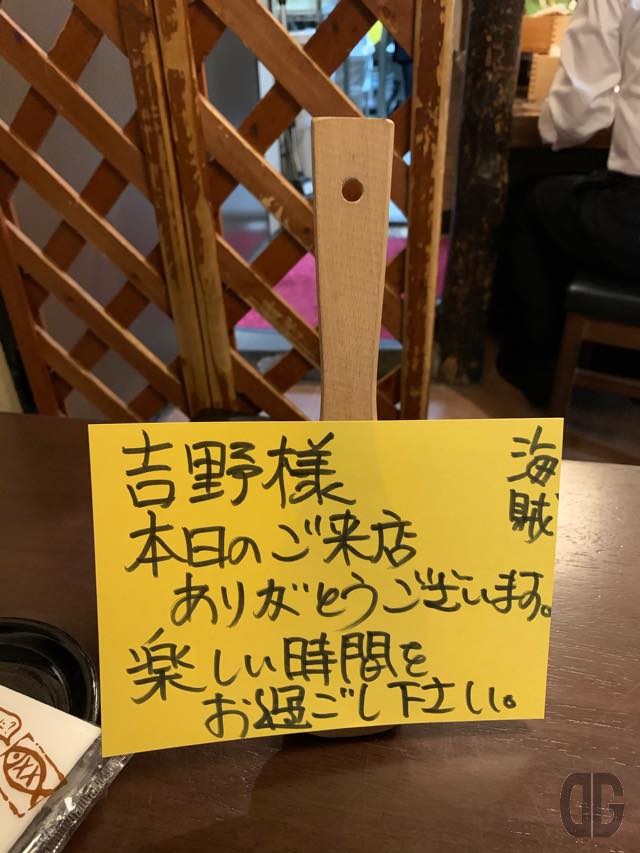 吉野様
海賊
本日のご来店
ありがとうございます。
楽しい時間を
お過ごし下さい。
DG